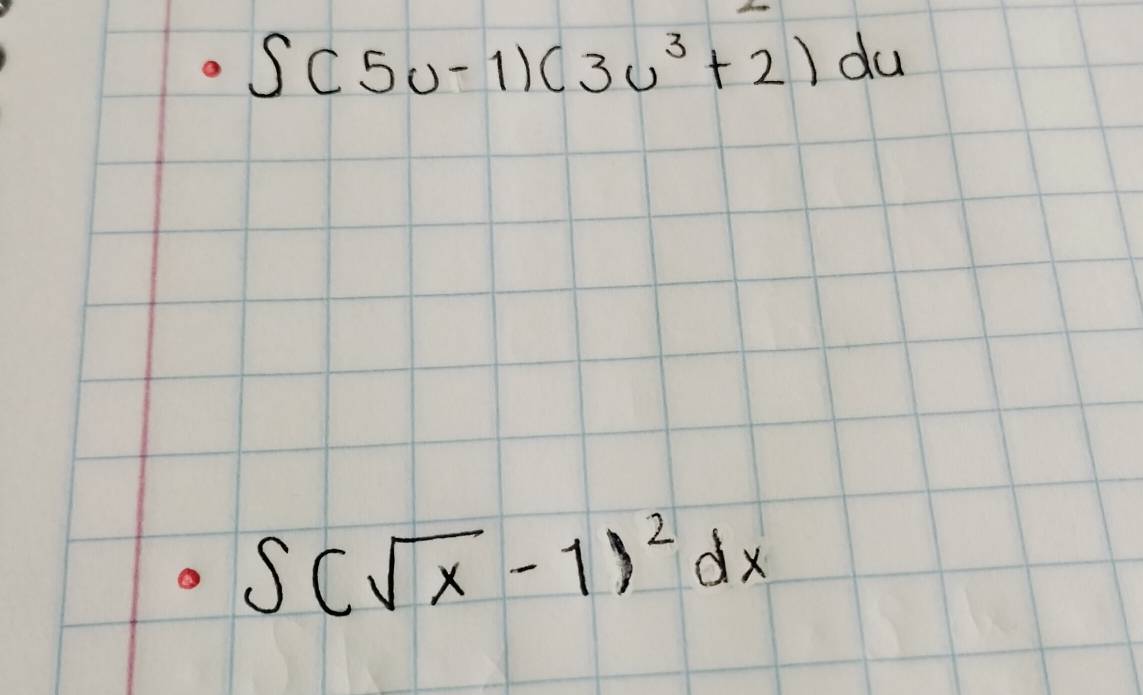 • ∫(5u-1)(3u³+2) du
• ∫(√x - 1)² dx